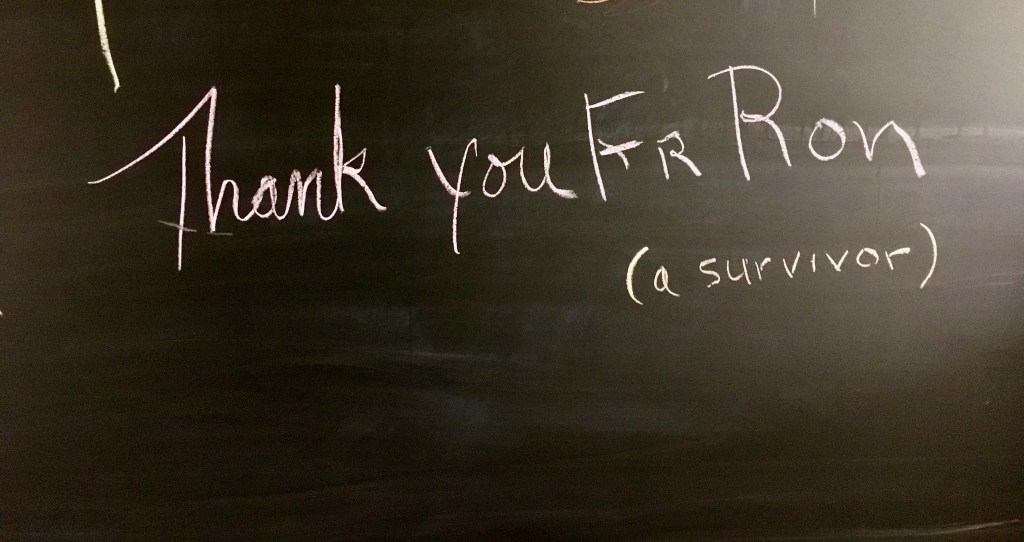 Thank you FR Ron
(a survivor)